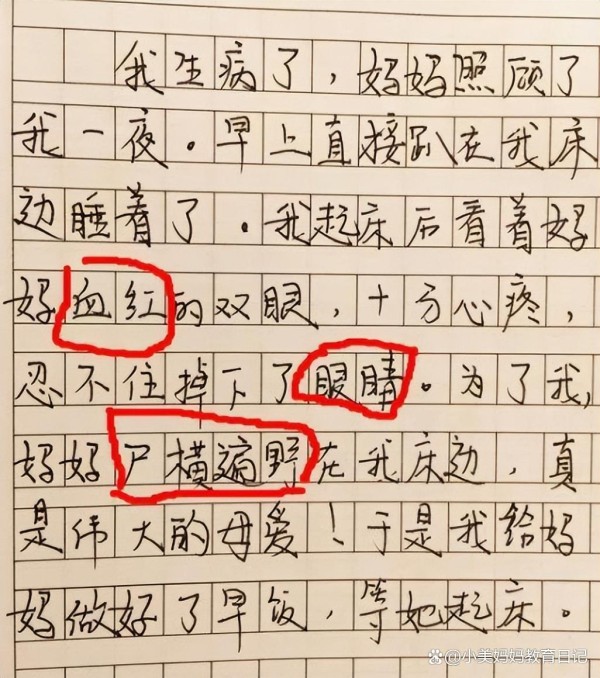 我生病了，妈妈照顾了
我一夜。早上直接趴在我床
边睡着了。我起床后看着妈
妈血红的双眼，十分心疼，
忍不住掉下了眼睛。为了我，
妈妈尸横遍野在我床边，真
是伟大的母爱！于是我给妈
妈做好了早饭，等她起床。
小美妈妈教育日记